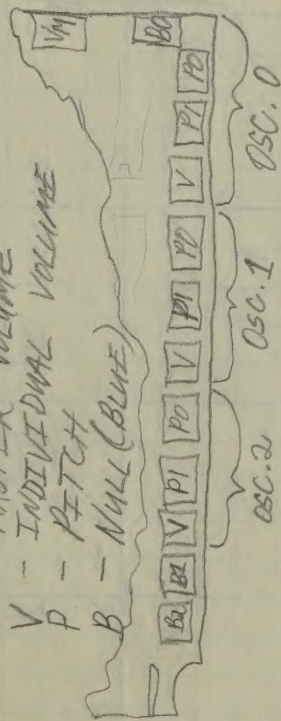 MASTER VOLUME
V - INDIVIDUAL VOLUME
P - PITCH
B - NULL (BLUE)
VM
B0
B2 B2 V P1 P0 V P1 P0 V P1 P0
OSC. 2 OSC. 1 OSC. 0